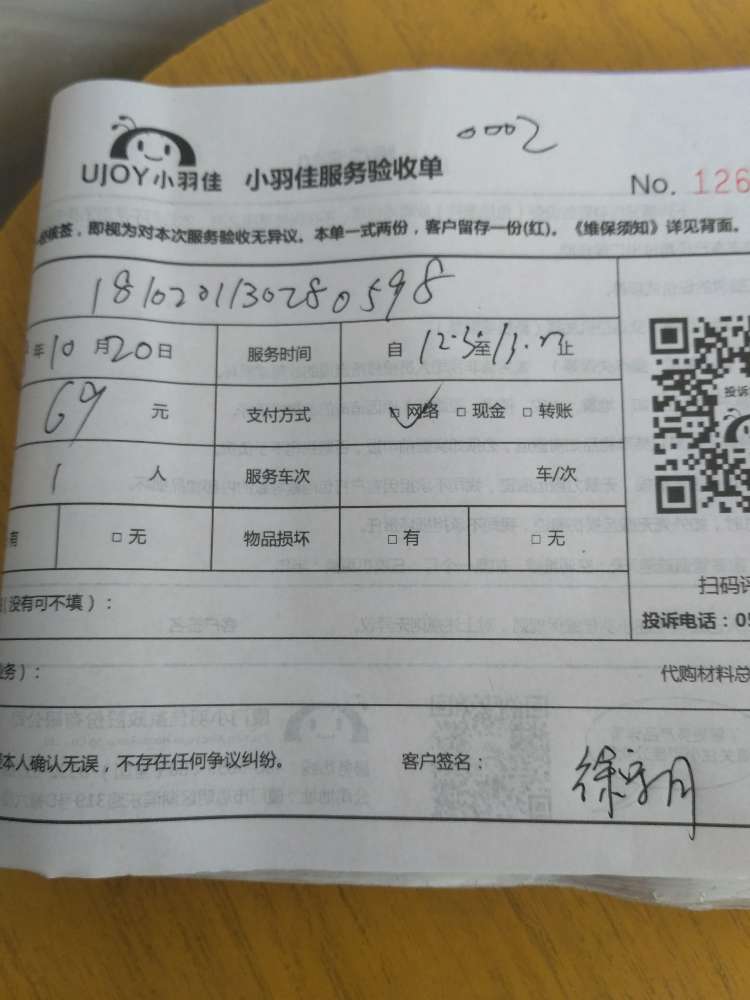 0002
UJOY小羽佳 小羽佳服务验收单
No. 126
签,即视为对本次服务验收无异议。本单一式两份,客户留存一份(红)。《维保须知》详见背面。
1810201130280598
年10月20日 服务时间 自 12.30至13. 止
69 元 支付方式 ☑ 网络 □ 现金 □ 转账
1 人 服务车次 车/次
有 □ 无 物品损坏 □ 有 □ 无
投诉
扫码评
(没有可不填):
投诉电话:05
务):
代购材料总
本人确认无误,不存在任何争议纠纷。 客户签名:
徐 月